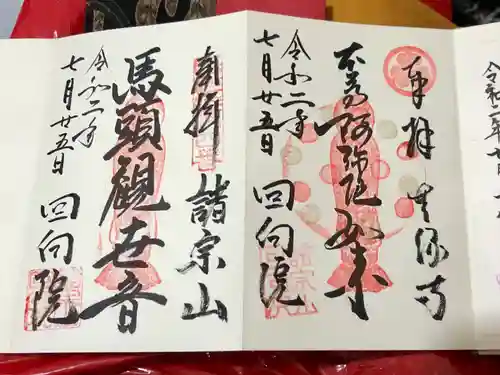 令和二年七月
奉拝 無縁寺
本尊阿弥陀如来
令和二年
七月廿五日 回向院
奉拝 諸宗山
馬頭觀世音
令和二年
七月廿五日 回向院